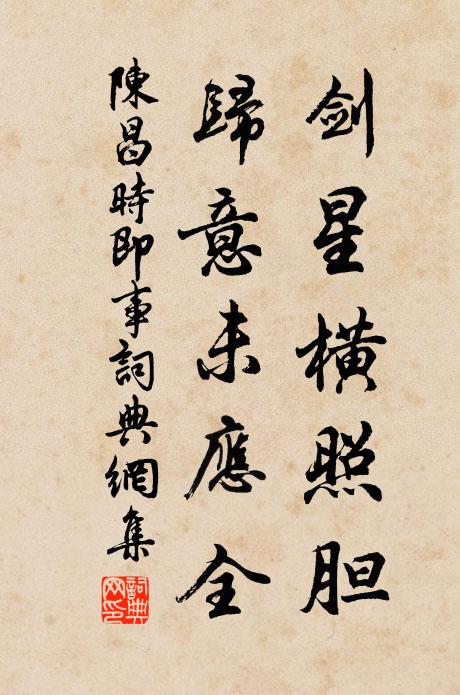 剑星横照胆
歸意未應全
陳昌時即事詞典網集
詞典网印